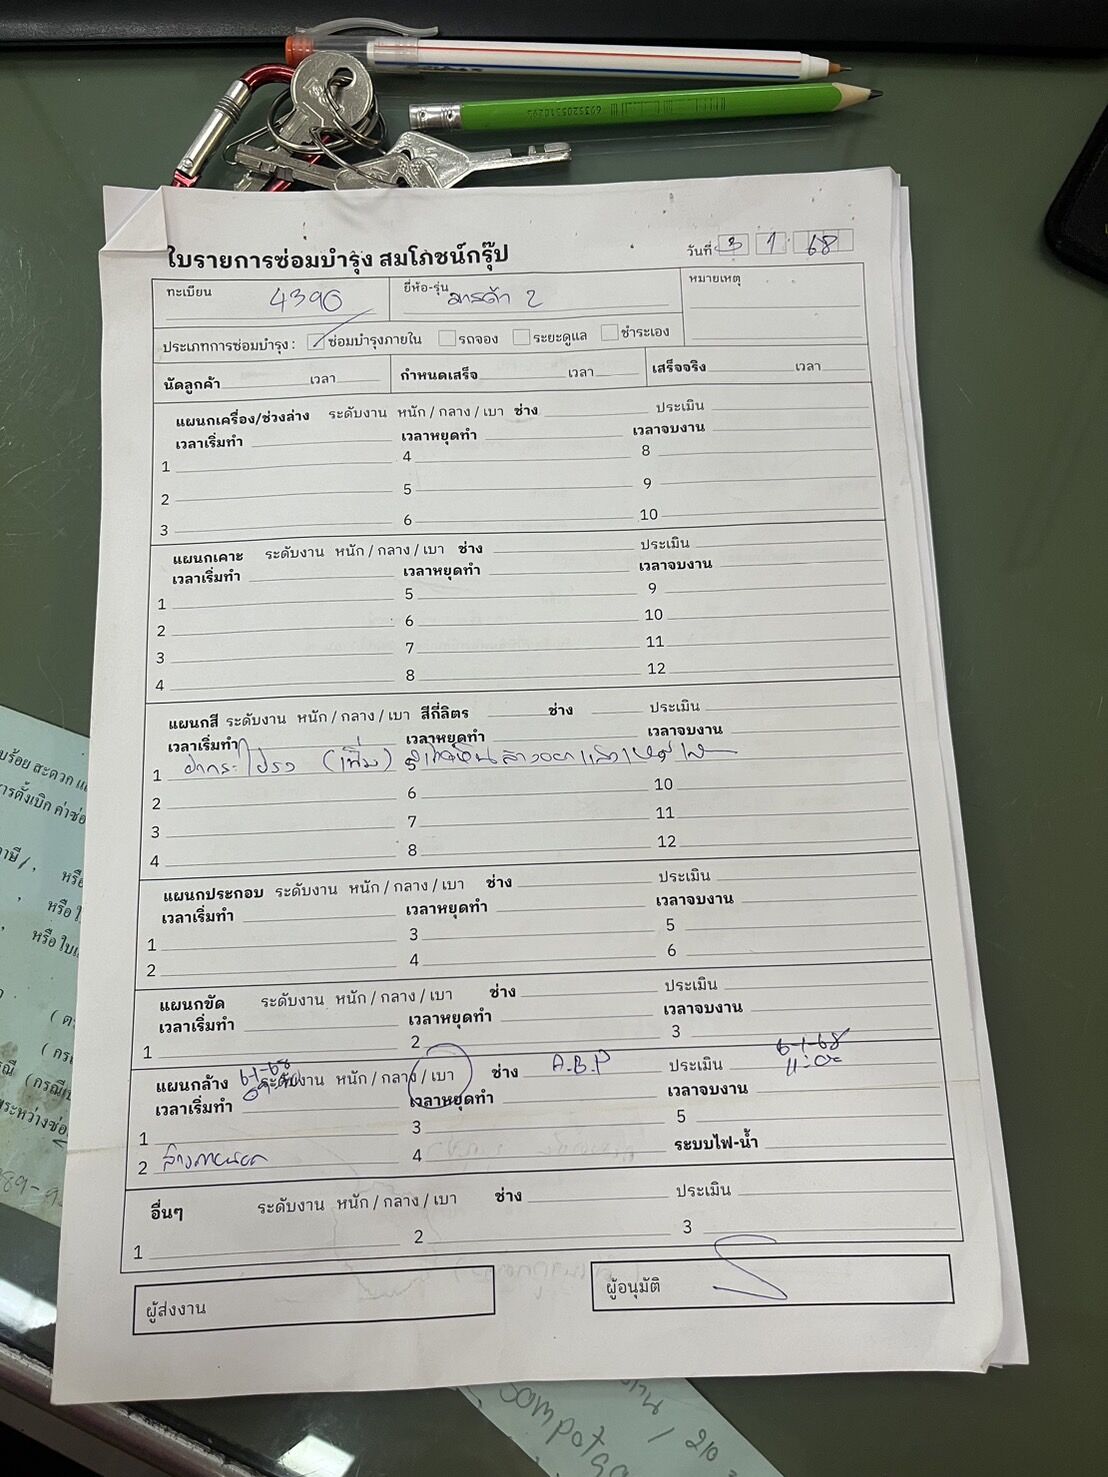 6935205310292
ใบรายการซ่อมบำรุง สมโภชน์กรุ๊ป
วันที่ 3 1 68
ทะเบียน 4390 ยี่ห้อ-รุ่น มาสด้า 2 หมายเหตุ
ประเภทการซ่อมบำรุง : ซ่อมบำรุงภายใน รถจอง ระยะดูแล ชำระเอง
นัดลูกค้า เวลา กำหนดเสร็จ เวลา เสร็จจริง เวลา
แผนกเครื่อง/ช่วงล่าง ระดับงาน หนัก / กลาง / เบา ช่าง ประเมิน
เวลาเริ่มทำ เวลาหยุดทำ เวลาจบงาน
1 4 8
2 5 9
3 6 10
แผนกเคาะ ระดับงาน หนัก / กลาง / เบา ช่าง ประเมิน
เวลาเริ่มทำ เวลาหยุดทำ เวลาจบงาน
1 5 9
2 6 10
3 7 11
4 8 12
แผนกสี ระดับงาน หนัก / กลาง / เบา สีกี่ลิตร ช่าง ประเมิน
เวลาเริ่มทำ เวลาหยุดทำ เวลาจบงาน
1 ฝากระโปรง (เพิ่ม) 5
2 6 10
3 7 11
4 8 12
แผนกประกอบ ระดับงาน หนัก / กลาง / เบา ช่าง ประเมิน
เวลาเริ่มทำ เวลาหยุดทำ เวลาจบงาน
1 3 5
2 4 6
แผนกขัด ระดับงาน หนัก / กลาง / เบา ช่าง ประเมิน
เวลาเริ่มทำ เวลาหยุดทำ เวลาจบงาน
1 2 3
แผนกล้าง 6-1-68 ระดับงาน หนัก / กลาง / เบา ช่าง A.B.P ประเมิน 6-1-68
เวลาเริ่มทำ เวลาหยุดทำ เวลาจบงาน
1 3 5
2 ล้างภายนอก 4 ระบบไฟ-น้ำ
อื่นๆ ระดับงาน หนัก / กลาง / เบา ช่าง ประเมิน
1 2 3
ผู้ส่งงาน ผู้อนุมัติ